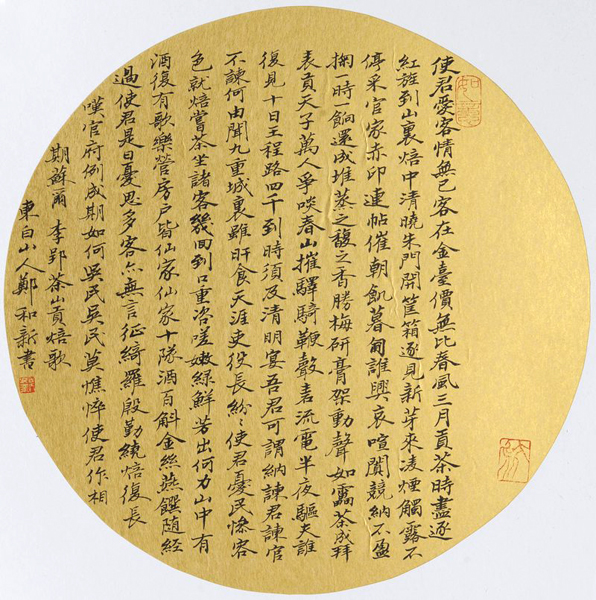 使君愛客情無已客在金臺價無比春風三月貢茶時盡逐
紅旌到山裏焙中清曉朱門開筐箱逐見新芽來凌煙觸露不
停采官家赤印連帖催朝飢暮匐誰興哀喧闐競納不盈
掬一時一餉還成堆蒸之馥之香勝梅研膏架動聲如靁茶成拜
表貢天子萬人爭啖春山摧驛騎鞭聲砉流電半夜驅夫誰
復見十日王程路四千到時須及清明宴吾君可謂納諫君諫官
不諫何由聞九重城裏雖旰食天涯吏役長紛〻使君憂民慘容
色就焙嘗茶坐諸客幾回到口重咨嗟嫩綠鮮芳出何力山中有
酒復有歌樂營房戶皆仙家仙家十隊酒百斛金絲燕饌隨經
過使君是日憂思多客亦無言征綺羅殷勤繞焙復長
嘆官府例成期如何吳民吳民莫憔悴使君作相
期蘇爾 李郢茶山貢焙歌
東白山人鄭和新書